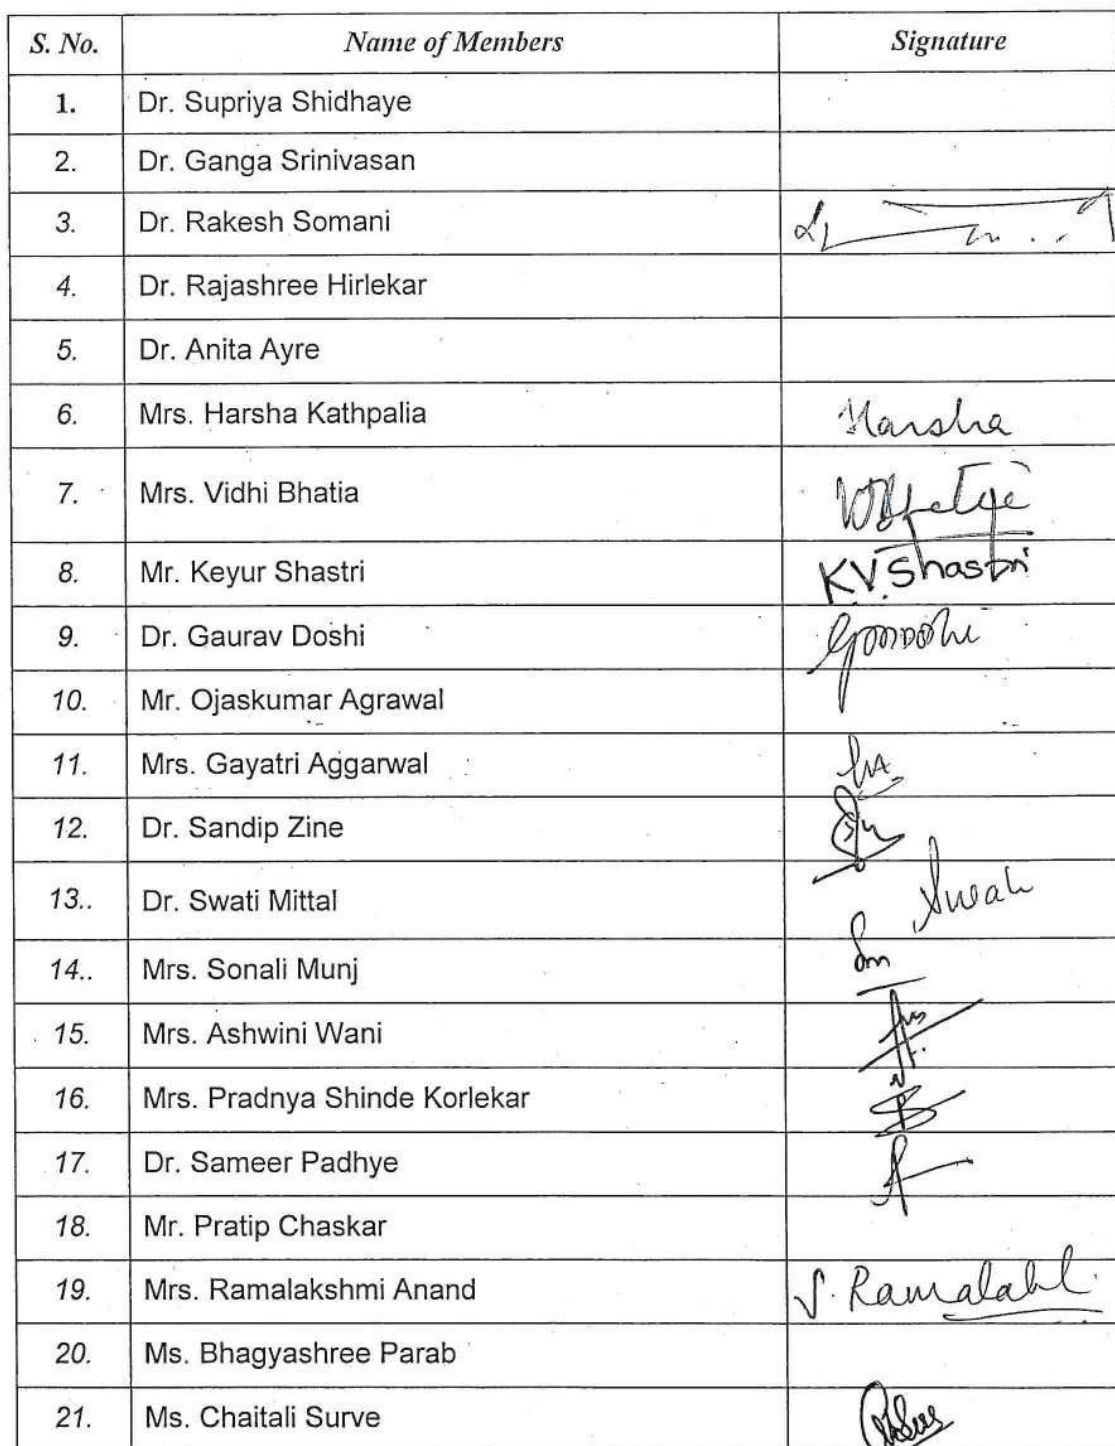 S. No. Name of Members Signature
1. Dr. Supriya Shidhaye
2. Dr. Ganga Srinivasan
3. Dr. Rakesh Somani
4. Dr. Rajashree Hirlekar
5. Dr. Anita Ayre
6. Mrs. Harsha Kathpalia Harsha
7. Mrs. Vidhi Bhatia
8. Mr. Keyur Shastri K.V.Shastri
9. Dr. Gaurav Doshi
10. Mr. Ojaskumar Agrawal
11. Mrs. Gayatri Aggarwal
12. Dr. Sandip Zine
13.. Dr. Swati Mittal
14.. Mrs. Sonali Munj
15. Mrs. Ashwini Wani
16. Mrs. Pradnya Shinde Korlekar
17. Dr. Sameer Padhye
18. Mr. Pratip Chaskar
19. Mrs. Ramalakshmi Anand
20. Ms. Bhagyashree Parab
21. Ms. Chaitali Surve